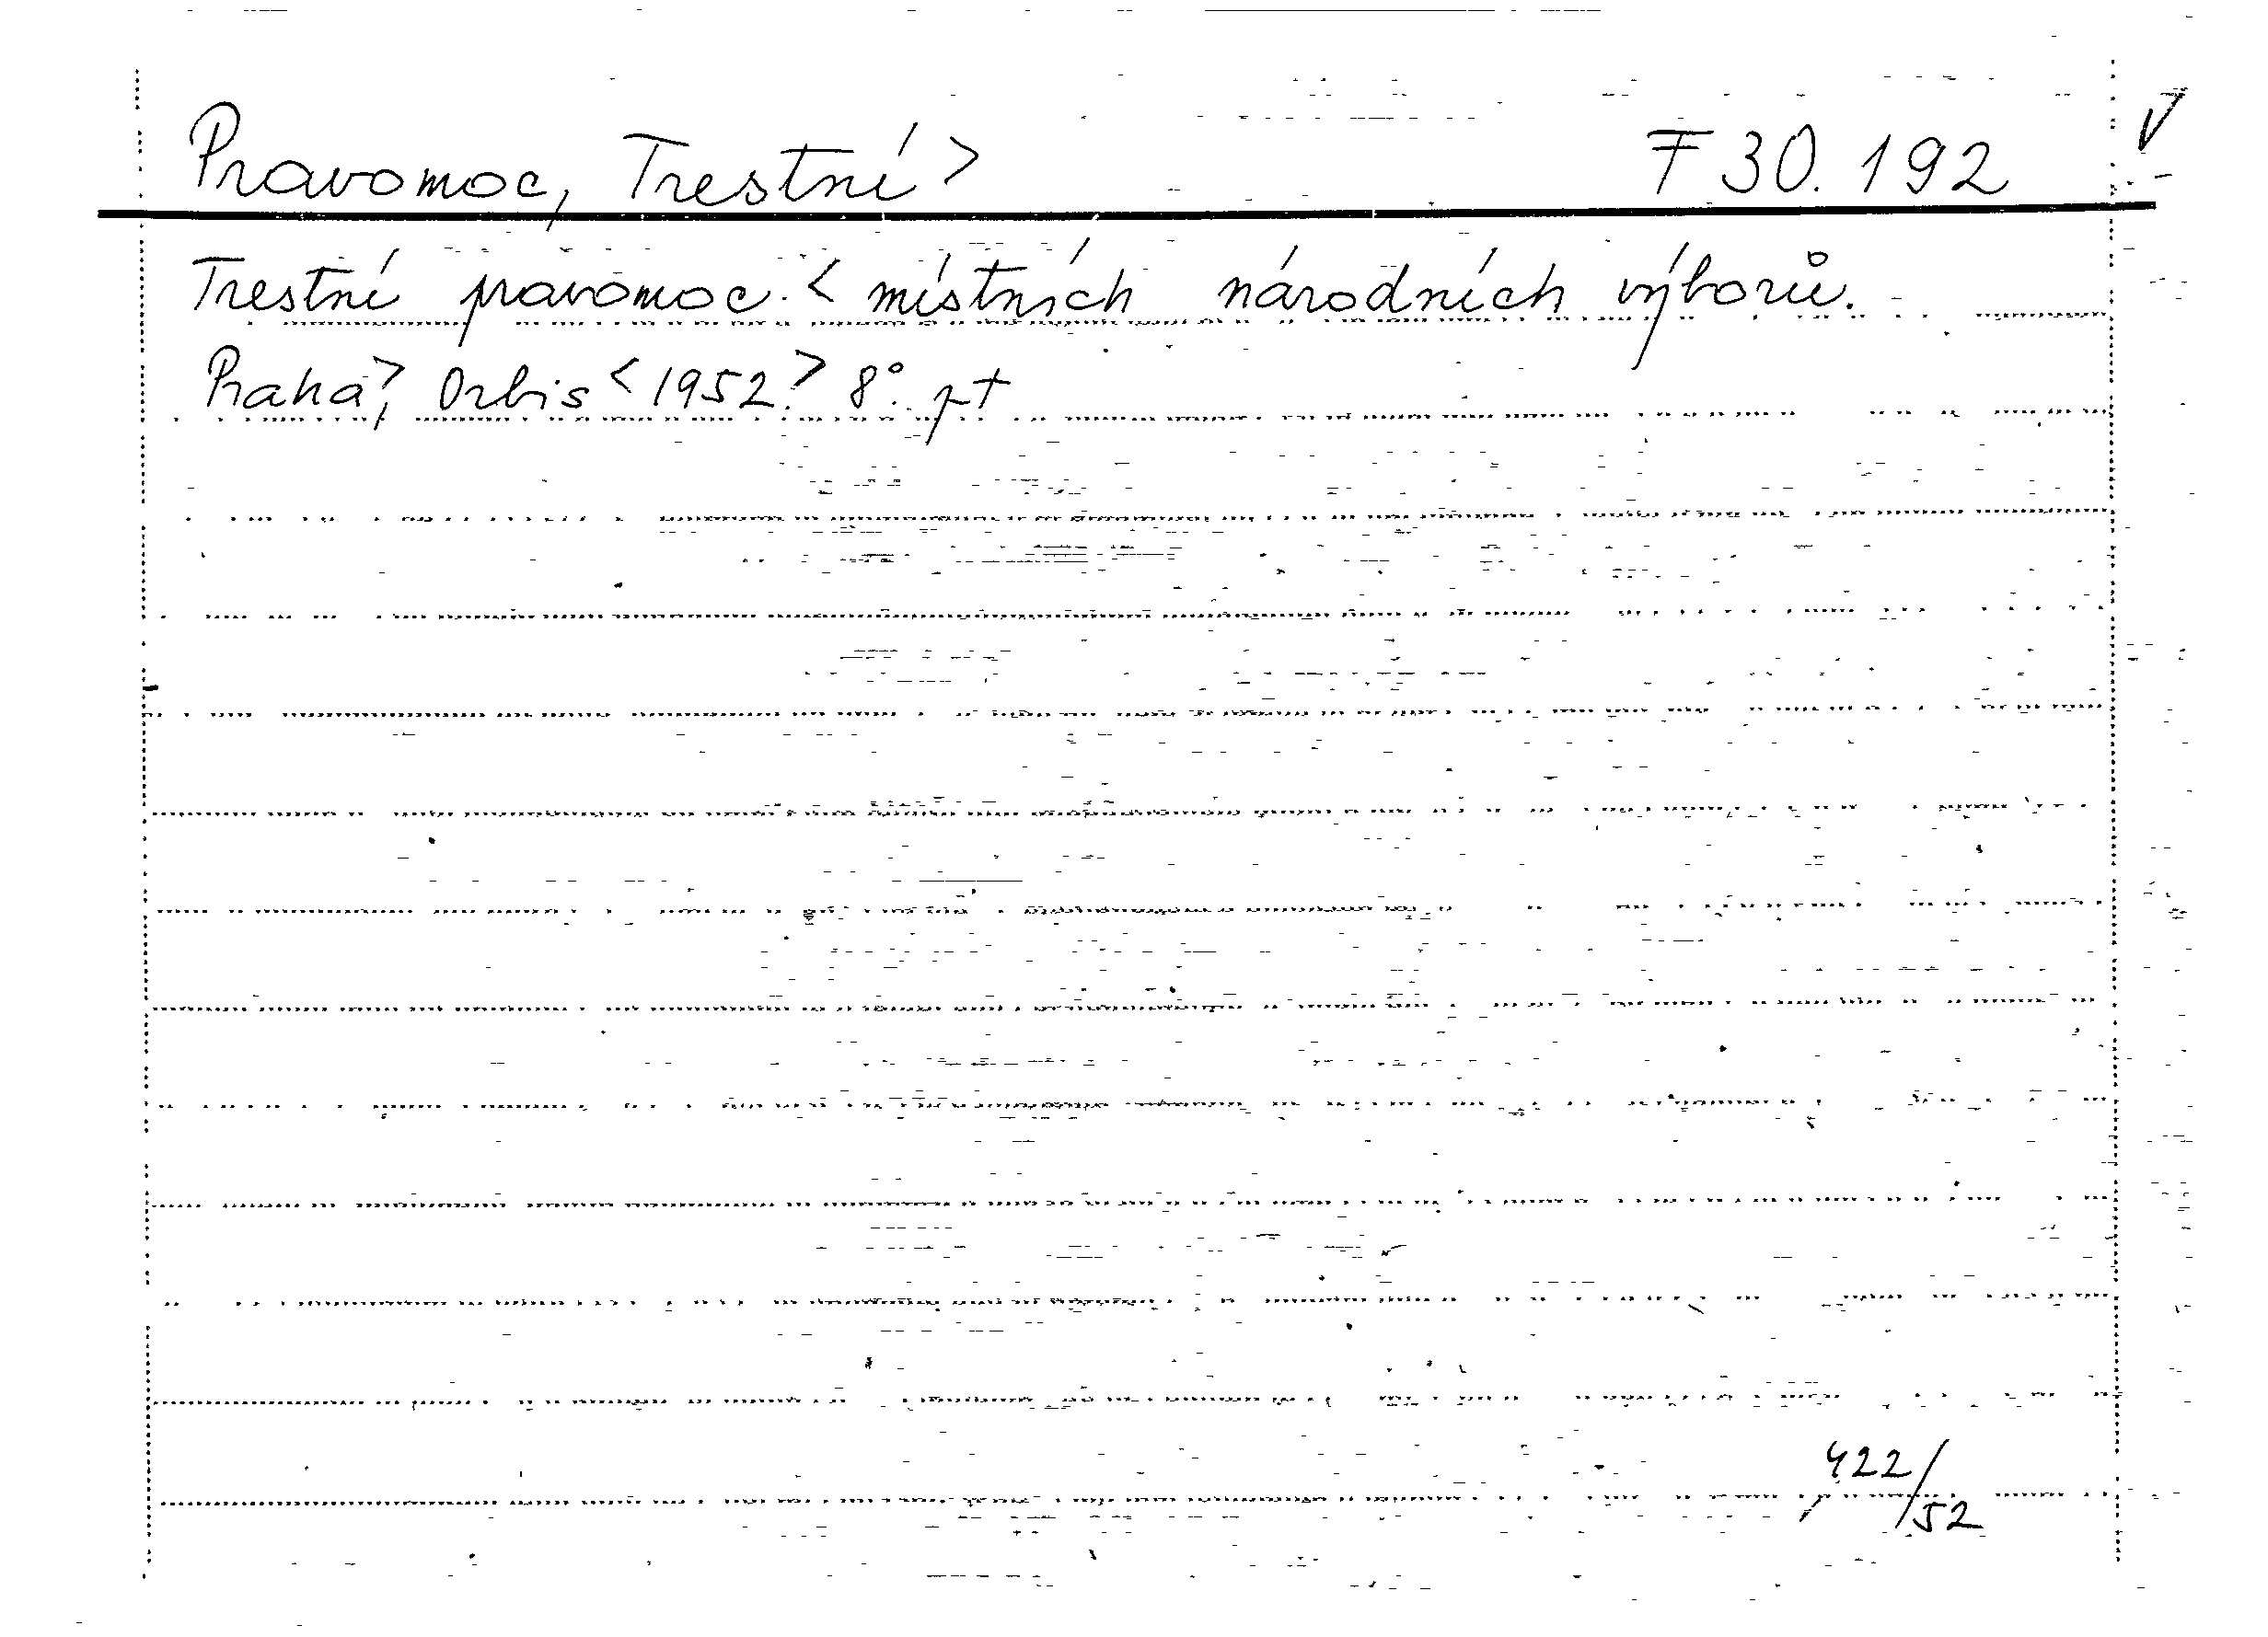 Pravomoc, Trestní > F 30.192 V
Trestní pravomoc < místních národních výborů.
Praha>, Orbis < 1952.> 8°. pt
422/52